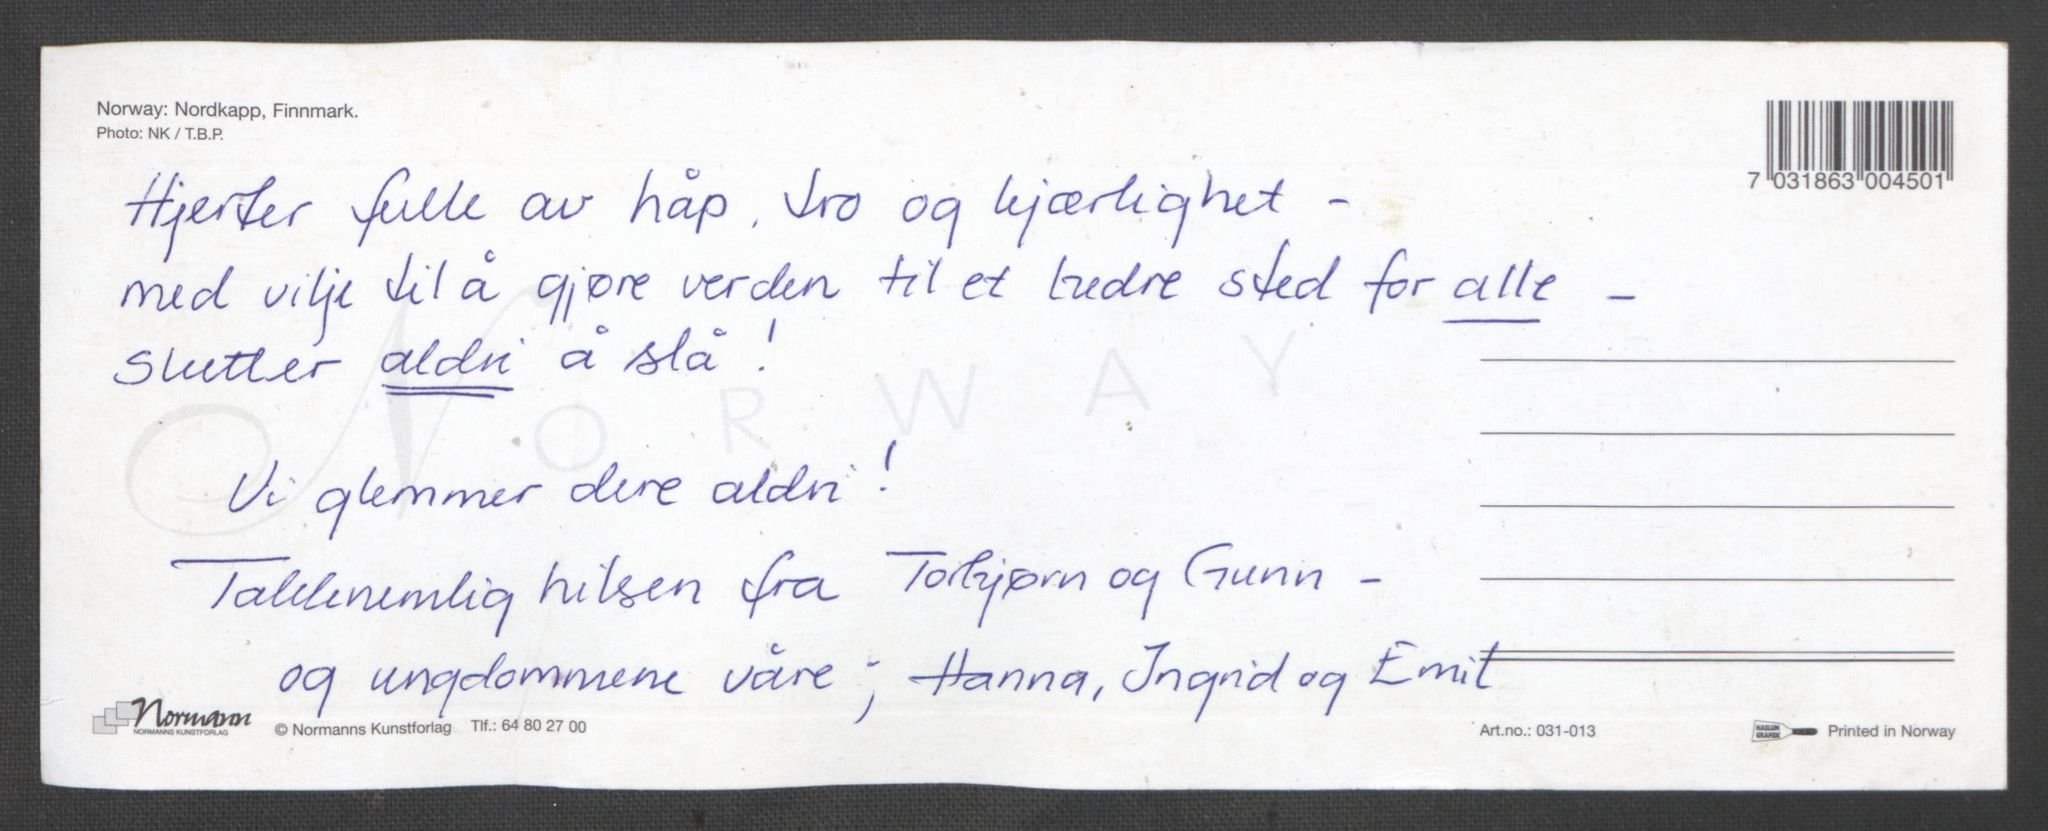 Norway: Nordkapp, Finnmark.
Photo: NK / T.B.P.
7 031863 004501
Hjerter fulle av håp, tro og kjærlighet -
med vilje til å gjøre verden til et bedre sted for alle -
slutter aldri å slå!
NORWAY
Vi glemmer dere aldri!
Takknemlig hilsen fra Torbjørn og Gunn -
og ungdommene våre; Hanna, Ingrid og Emil
Normann
NORMANNS KUNSTFORLAG
© Normanns Kunstforlag Tlf.: 64 80 27 00
Art.no.: 031-013
HASLUM
GRAFISK
Printed in Norway